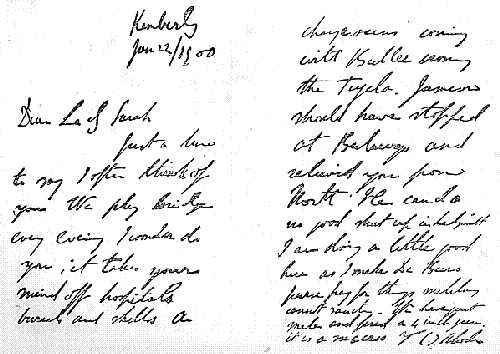 Kimberly
Jan 12/1900
Dear Lady Sarah
Just a line
to say I often think of
you We play bridge
every evening I wonder do
you, it takes your
mind off hospitals
burials and shells A
change coming
with Buller crossing
the Tugela. Jameson
should have stopped
at Bulawayo and
relieved you from
North He can do
no good shut up in Ladysmith
I am doing a little good
here as I make De Beers
purse pay for things
and formed a 4 inch gun.
it is a success